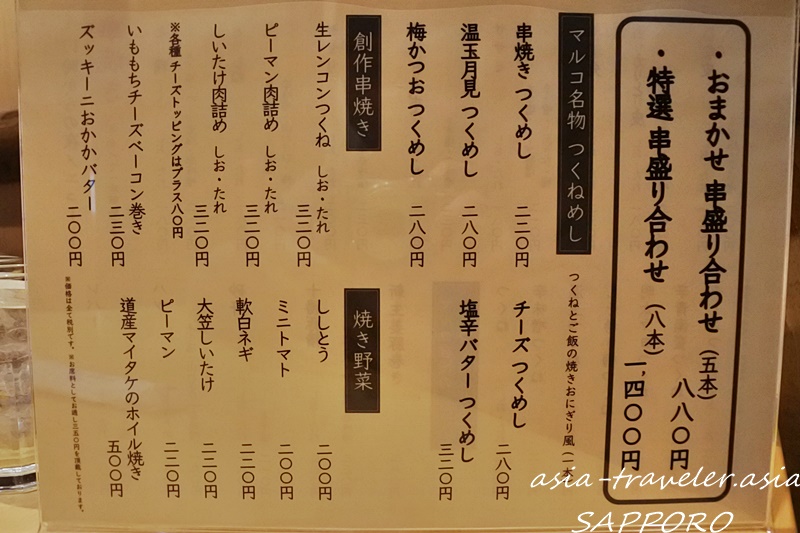 ・おまかせ 串盛り合わせ（五本）
八八〇円
・特選 串盛り合わせ（八本）
一、四〇〇円
マルコ名物 つくねめし
つくねとご飯の焼きおにぎり風（一本
串焼き つくめし 二二〇円
チーズ つくめし 二八〇円
温玉月見 つくめし 二八〇円
塩辛バター つくめし 三二〇円
梅かつお つくめし 二八〇円
創作串焼き
生レンコンつくね しお・たれ 三二〇円
ピーマン肉詰め しお・たれ 三二〇円
しいたけ肉詰め しお・たれ 三二〇円
※各種 チーズトッピングはプラス八〇円
いももちチーズベーコン巻き 二三〇円
ズッキーニおかかバター 二〇〇円
焼き野菜
ししとう 二〇〇円
ミニトマト 二〇〇円
軟白ネギ 二二〇円
大笠しいたけ 二二〇円
ピーマン 二二〇円
道産マイタケのホイル焼き 五〇〇円
※価格は全て税別です。※お席料としてお通し三五〇円を頂戴しております。
asia-traveler.asia
SAPPORO